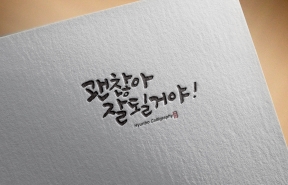 괜찮아
잘될거야!
Hyunde Calligraphy